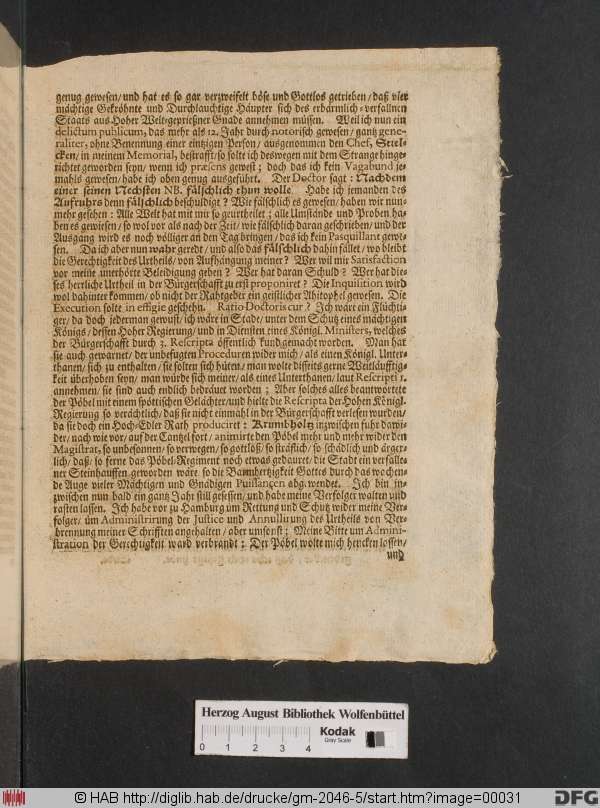 genug gewesen/ und hat es so gar verzweifelt böse und Gottlos getrieben/ daß vier
mächtige Gekröhnte und Durchlauchtige Häupter sich des erbärmlich-verfallnen
Staats aus Hoher Welt-geprießner Gnade annehmen müssen. Weil ich nun ein
delictum publicum, das mehr als 12. Jahr durch notorisch gewesen/ gantz gene-
raliter, ohne Benennung einer eintzigen Person/ ausgenommen den Chef, Stiel-
cken/ in meinem Memorial, bestrafft/ so solte ich deswegen mit dem Strange hinge-
richtet geworden seyn/ wenn ich præsens gewest; doch das ich kein Vagabund je-
mahls gewesen/ habe ich oben genug ausgeführt. Der Doctor sagt: Nachdem
einer seinen Nechsten NB. fälschlich thun wolle. Habe ich jemanden des
Aufruhrs denn fälschlich beschuldiget? Wie fälschlich es gewesen/ haben wir nun-
mehr gesehen: Alle Welt hat mit mir so geurtheilet; alle Umstände und Proben ha-
ben es gewiesen/ so wol vor als nach der Zeit/ wie fälschlich daran geschrieben/ und der
Ausgang wird es noch völliger an den Tag bringen/ das ich kein Pasquillant gewe-
sen. Da ich aber nun wahr geredt/ und also das fälschlich dahin fället/ wo bleibt
die Gerechtigkeit des Urtheils/ von Aufhängung meiner? Wer wil mir Satisfaction
vor meine unerhörte Beleidigung geben? Wer hat daran Schuld? Wer hat die-
ses herrliche Urtheil in der Bürgerschafft zu erst proponiret? Die Inquisition wird
wol dahinter kommen/ ob nicht der Rahtgeber ein geistlicher Ahitophel gewesen. Die
Execution solte in effigie geschehn. Ratio Doctoris cur? Ich wäre ein Flüchti-
ger/ da doch jederman gewust/ ich wäre in Stade/ unter dem Schutz eines mächtigen
Königs/ dessen Hoher Regierung/ und in Diensten eines Königl. Ministers, welches
der Bürgerschafft durch 3. Rescripta öffentlich kund gemacht worden. Man hat
sie auch gewarnet/ der unbefugten Proceduren wider mich/ als einen Königl. Unter-
thanen/ sich zu enthalten/ sie solten sich hüten/ man wolte disseits gerne Weitläufftig-
keit überhoben seyn/ man würde sich meiner/ als eines Unterthanen/ laut Rescripti 1.
annehmen/ sie sind auch endlich bedräuet worden; Aber solches alles beantwortete
der Pöbel mit einem spöttischen Gelächter/ und hielte die Rescripta der Hohen Königl.
Regierung so verächtlich/ daß sie nicht einmahl in der Bürgerschafft verlesen wurden/
da sie doch ein Hoch-Edler Raht produciret: Krumbholtz inzwischen fuhr dawi-
der/ nach wie vor/ auf der Cantzel fort/ animirte den Pöbel mehr und mehr wider den
Magistrat, so unbesonnen/ so verwegen/ so gottloß/ so sträflich/ so schädlich und ärger-
lich/ daß/ so ferne das Pöbel-Regiment noch etwas gedauret/ die Stadt ein verfalle-
ner Steinhauffen geworden wäre/ so die Barmhertzigkeit Gottes durch das wachen-
de Auge vieler Mächtigen und Gnädigen Puissançen abgewendet. Ich bin in-
zwischen nun bald ein gantz Jahr still gesessen/ und habe meine Verfolger walten und
rasten lassen. Ich habe vor zu Hamburg um Rettung und Schutz wider meine Ver-
folger/ üm Administrirung der Justice und Annullirung des Urtheils von Ver-
brennung meiner Schrifften angehalten/ aber umsonst; Meine Bitte um Admini-
stration der Gerechtigkeit ward verbrandt; Der Pöbel wolte mich hencken lassen/
und
Herzog August Bibliothek Wolfenbüttel
Kodak
Gray Scale
0 1 2 3 4
© HAB http://diglib.hab.de/drucke/gm-2046-5/start.htm?image=00031
DFG